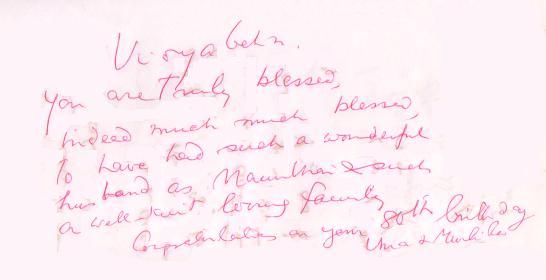 Viryabehn.
You are truly blessed,
Indeed much much blessed,
To have had such a wonderful
husband as & such
a well-knit loving family
Congratulations on your 80th birthday
Uma &